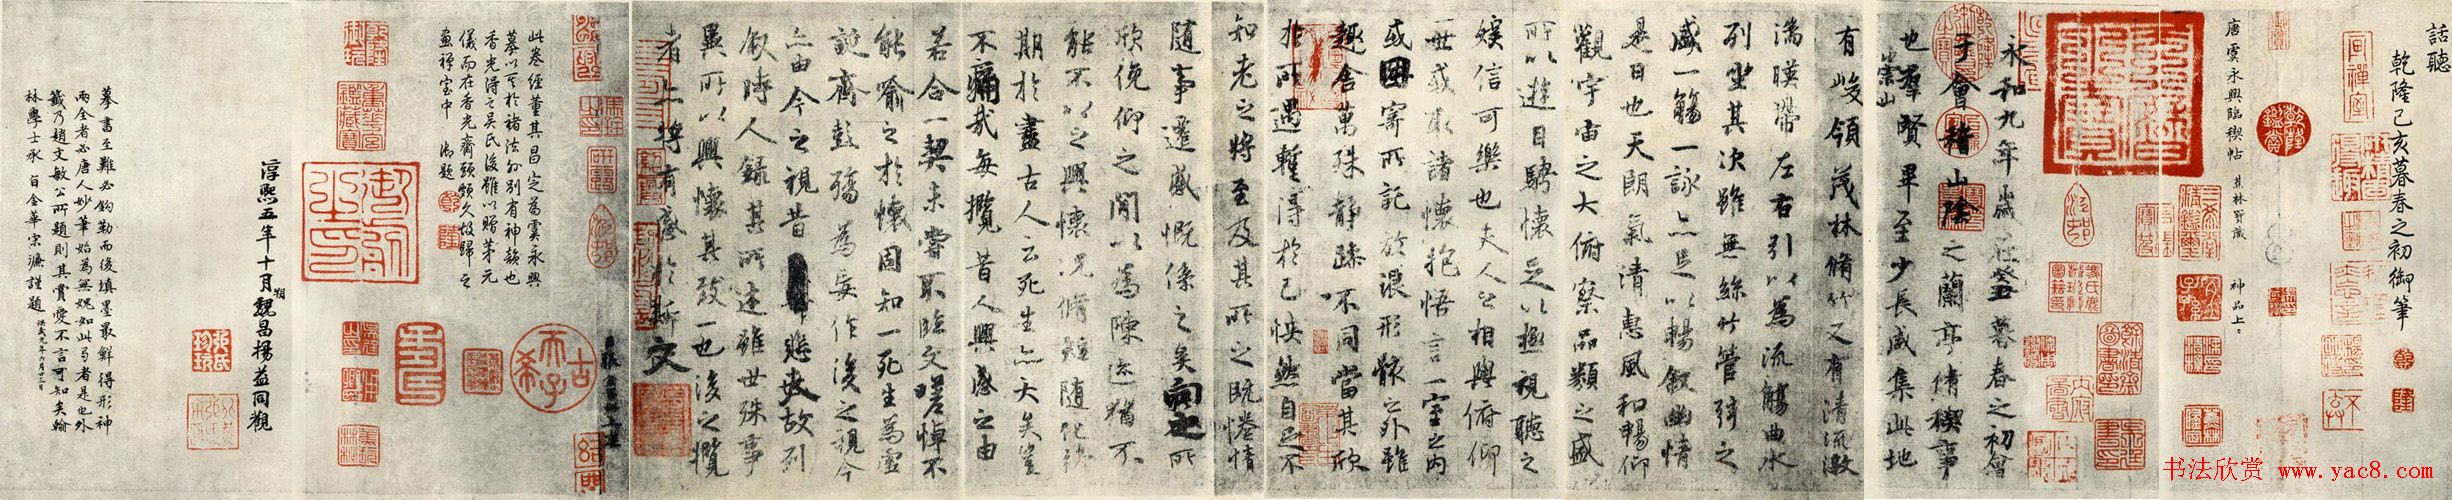 話聽
乾隆己亥暮春之初御筆
唐虞永興臨禊帖
神品上上
永和九年歲在癸丑暮春之初會
于會稽山陰之蘭亭脩禊事
也羣賢畢至少長咸集此地
有崇山峻領茂林脩竹又有清流激
湍暎帶左右引以為流觴曲水
列坐其次雖無絲竹管弦之
盛一觴一詠亦足以暢敘幽情
是日也天朗氣清惠風和暢仰
觀宇宙之大俯察品類之盛
所以遊目騁懷足以極視聽之
娛信可樂也夫人之相與俯仰
一世或取諸懷抱悟言一室之內
或因寄所託放浪形骸之外雖
趣舍萬殊靜躁不同當其欣
於所遇暫得於己怏然自足不
知老之將至及其所之既惓情
隨事遷感慨係之矣向之所
欣俛仰之閒以為陳迹猶不
能不以之興懷況脩短隨化終
期於盡古人云死生亦大矣豈
不痛哉每攬昔人興感之由
若合一契未嘗不臨文嗟悼不
能喻之於懷固知一死生為虛
誕齊彭殤為妄作後之視今
亦由今之視昔悲夫故列
敘時人錄其所述雖世殊事
異所以興懷其致一也後之攬
者亦將有感於斯文
古稀天子
此卷經董其昌定為虞永興
摹以其於褚法外別有神韻也
香光得之吳氏後雖以贈茅元
儀而在香光齋頭頗久故歸之
畫禪室中 御題
淳熙五年十月朔魏昌楊益同觀
摹書至難必鉤勒而後填墨最鮮得形神
兩全者必唐人妙筆始為無媿如此弓者是也外
籤乃趙文敏公所題則其賞愛不言可知矣翰
林學士承旨金華宋濂謹題 洪武九年六月廿三日
书法欣赏 www.yac8.com